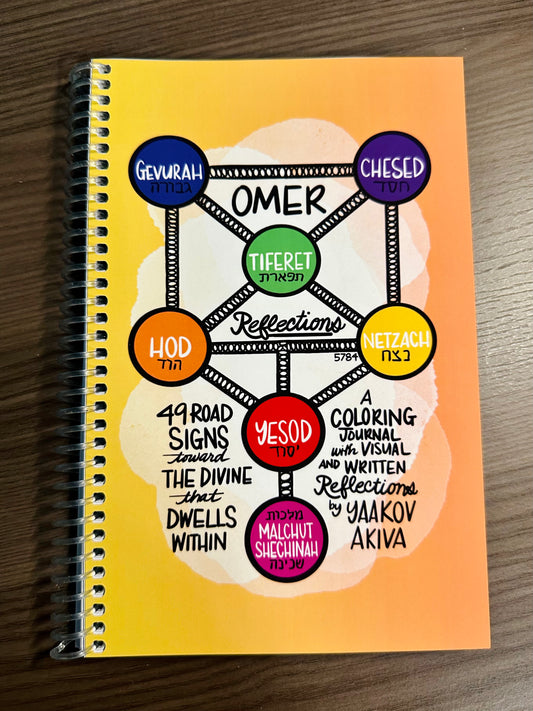 GEVURAH
גבורה
CHESED
חסד
OMER
TIFERET
תפארת
Reflections
5784
HOD
הוד
NETZACH
נצח
YESOD
יסוד
49 ROAD
SIGNS
toward
THE DIVINE
that
DWELLS
WITHIN
A
COLORING
JOURNAL
with VISUAL
AND WRITTEN
Reflections
by YAAKOV
AKIVA
מלכות
MALCHUT
SHECHINAH
שכינת